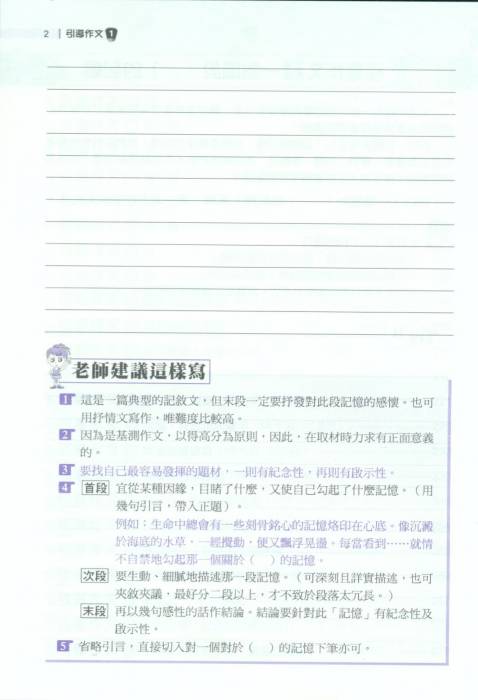 2 引導作文 1
老師建議這樣寫
1 這是一篇典型的記敘文，但末段一定要抒發對此段記憶的感懷。也可
用抒情文寫作，唯難度比較高。
2 因為是基測作文，以得高分為原則，因此，在取材時力求有正面意義
的。
3 要找自己最容易發揮的題材，一則有紀念性，再則有啟示性。
4 首段 宜從某種因緣，目睹了什麼，又使自己勾起了什麼記憶。（用
幾句引言，帶入正題）。
例如：生命中總會有一些刻骨銘心的記憶烙印在心底。像沉澱
於海底的水草，一經攪動，便又飄浮晃盪。每當看到……就情
不自禁地勾起那一個關於（　）的記憶。
次段 要生動、細膩地描述那一段記憶。（可深刻且詳實描述，也可
夾敘夾議，最好分二段以上，才不致於段落太冗長。）
末段 再以幾句感性的話作結論。結論要針對此「記憶」有紀念性及
啟示性。
5 省略引言，直接切入對一個對於（　）的記憶下筆亦可。